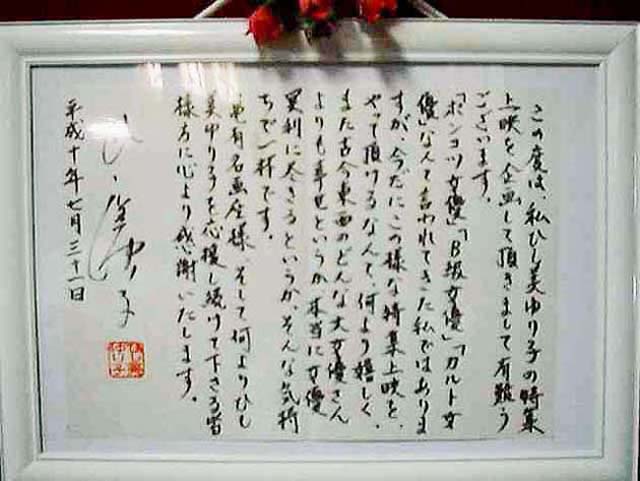 この度は、私ひし美ゆり子の特集
上映を企画して頂きまして有難う
ございます。
「ポンコツ女優」「B級女優」「カルト女
優」なんて言われてきた私ではありま
すが、今だにこの様な特集上映を、
やって頂けるなんて、何より嬉しく、
また古今東西のどんな大女優さん
よりも幸せというか本当に女優
冥利に尽きるというか、そんな気持
ちで一杯です。
亀有名画座様、そして何よりひし
美ゆり子を応援し続けて下さる皆
様方に心より感謝いたします。
ひし美ゆり子
平成十年七月三十一日